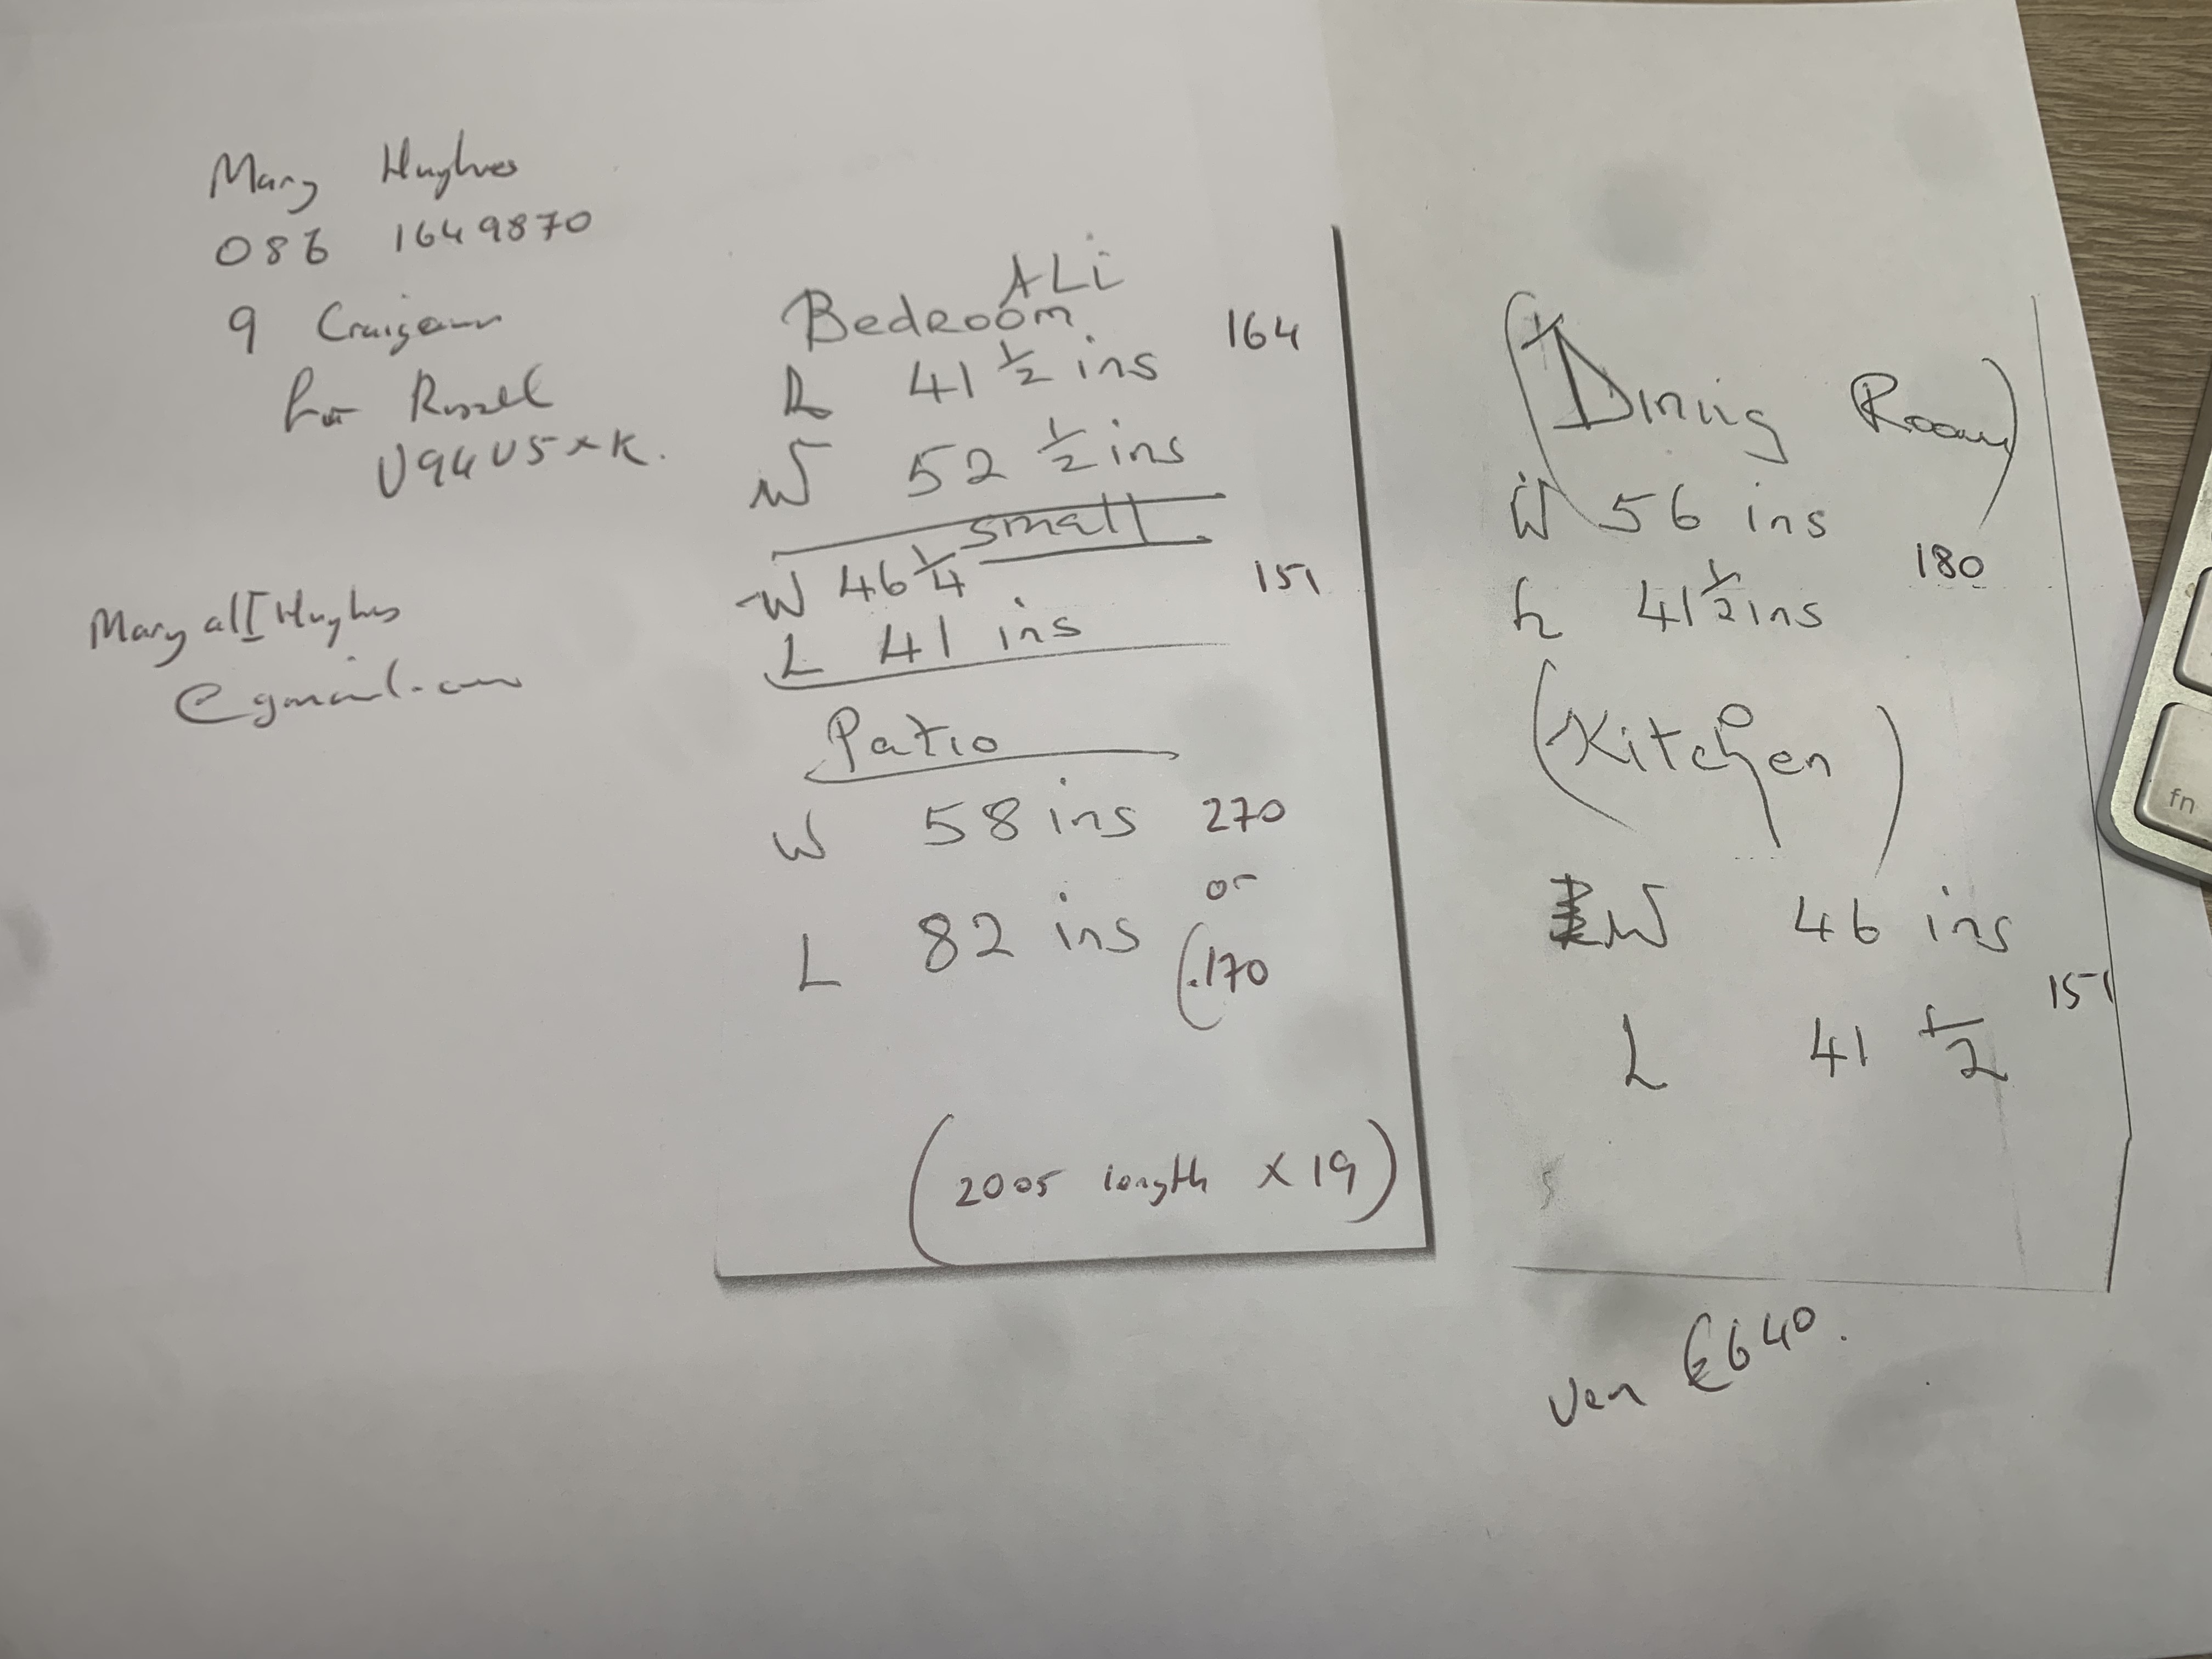 Mary Hughes
086 1649870
9
Russell
U94U5XK.
Mary
@gmail.com
ALi
Bedroom
41 1/2 ins
164
W 52 1/2 ins
small
W 46 1/4
151
L 41 ins
Patio
W 58 ins 270
or
L 82 ins (.170
(2005 length x 19)
(Dining Room)
W 56 ins
180
L 41 1/2 ins
(Kitchen)
W 46 ins
151
L 41 1/2
Ven €640.
fn